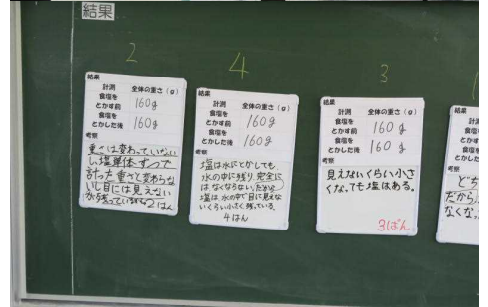 結果
2
結果
計測 全体の重さ(g)
食塩を
とかす前 160g
食塩を
とかした後 160g
考察
重さは変わっていない
し、塩単体ずつで
計った重さと変わらな
いし目には見えない
が残っている
2はん
4
結果
計測 全体の重さ(g)
食塩を
とかす前 160g
食塩を
とかした後 160g
考察
塩は水にとかしても
水の中に残り、完全に
はなくならない。だから
塩は、水の中で目に見えな
いくらい小さく残っている。
4はん
3
結果
計測 全体の重さ(g)
食塩を
とかす前 160g
食塩を
とかした後 160g
考察
見えないくらい小さ
くな。ても塩はある。
3ぱん
結果
計測
食塩を
とかす前
食塩を
とかした後
考察
どち
だから
なくな